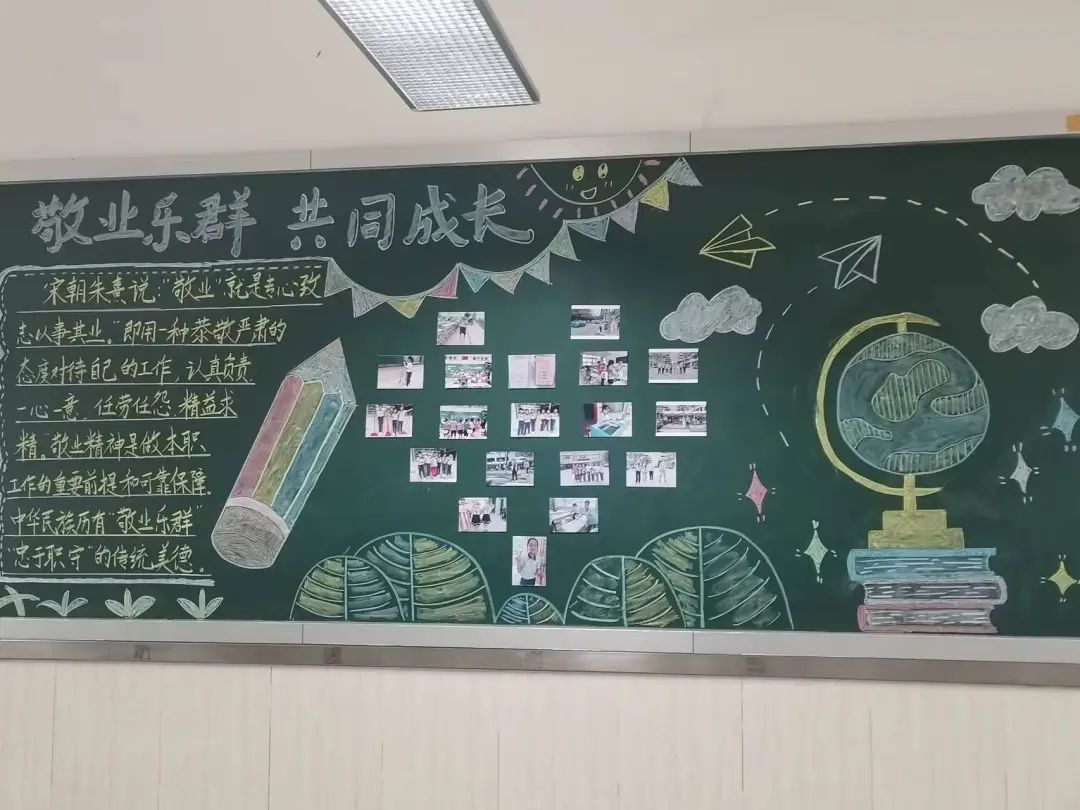 敬业乐群 共同成长
宋朝朱熹说:“敬业”就是专心致
志以事其业。”即用一种恭敬严肃的
态度对待自己的工作,认真负责
一心一意,任劳任怨,精益求
精。敬业精神是做本职
工作的重要前提和可靠保障。
中华民族历有“敬业乐群”
“忠于职守”的传统美德。